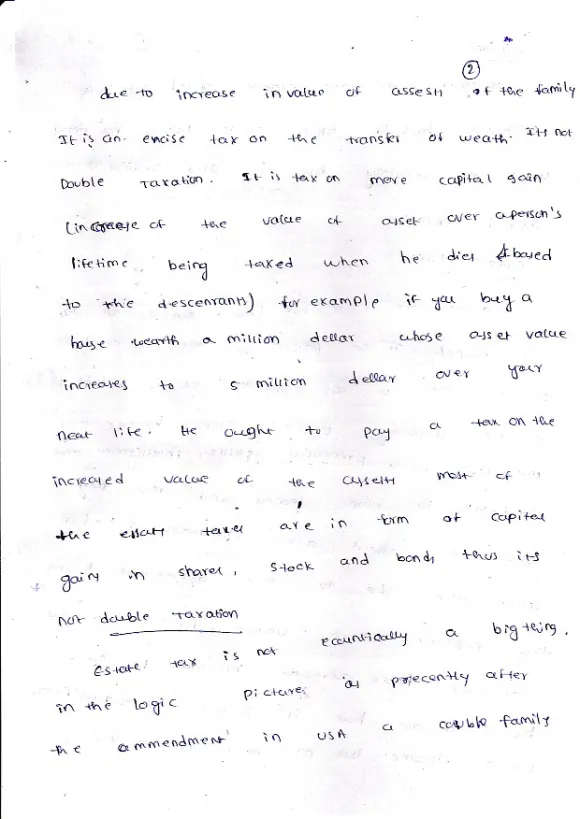 2
due to increase in value of assesti of the family
It is an encise tax on the transfer of weath. Its not
Double Taxation. It is tax on mere capital gain
(increase of the value of asset over a person's
lifetime being taxed when he dies & bayed
to the descenrants) for example if you buy a
house wearth a million dellar whose asset value
increases to 5 million dellar over your
neat life. He ought to pay a tax on the
increased value of the assetts most of
the estatt taxes are in form of capital
gains in shares, stock and bonds thus its
not double Taxation
Estate tax is not a big thing,
in the logic pictures as after
the ammendment in USA a family